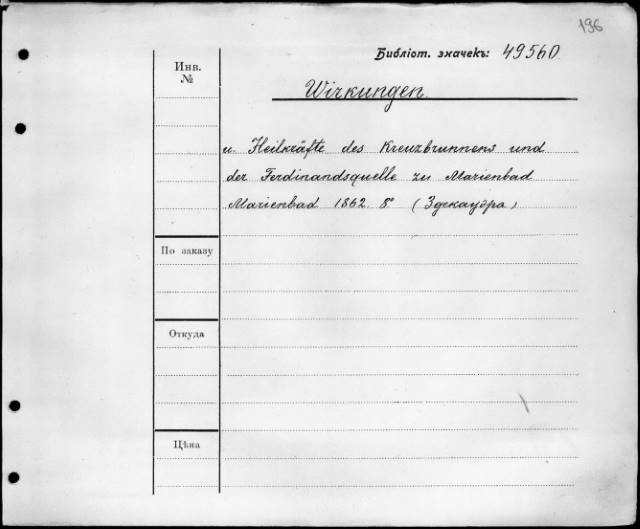 196
Библіот. значекъ: 49560
Инв.
№
Wirkungen.
u. Heilkräfte des Kreuzbrunnens und
der Ferdinandsquelle zu Marienbad
Marienbad 1862. 8° (Здекауэра)
По заказу
Откуда
Цѣна